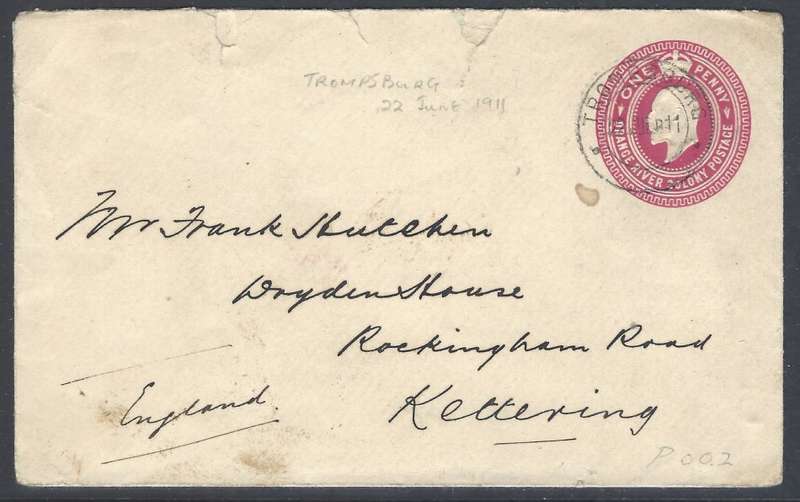 TROMPSBURG
22 JUNE 1911
ONE PENNY
ORANGE RIVER COLONY POSTAGE
TROMPSBURG
11
Mr Frank Hutchen
Dryden House
Rockingham Road
Kettering
England.
P 002